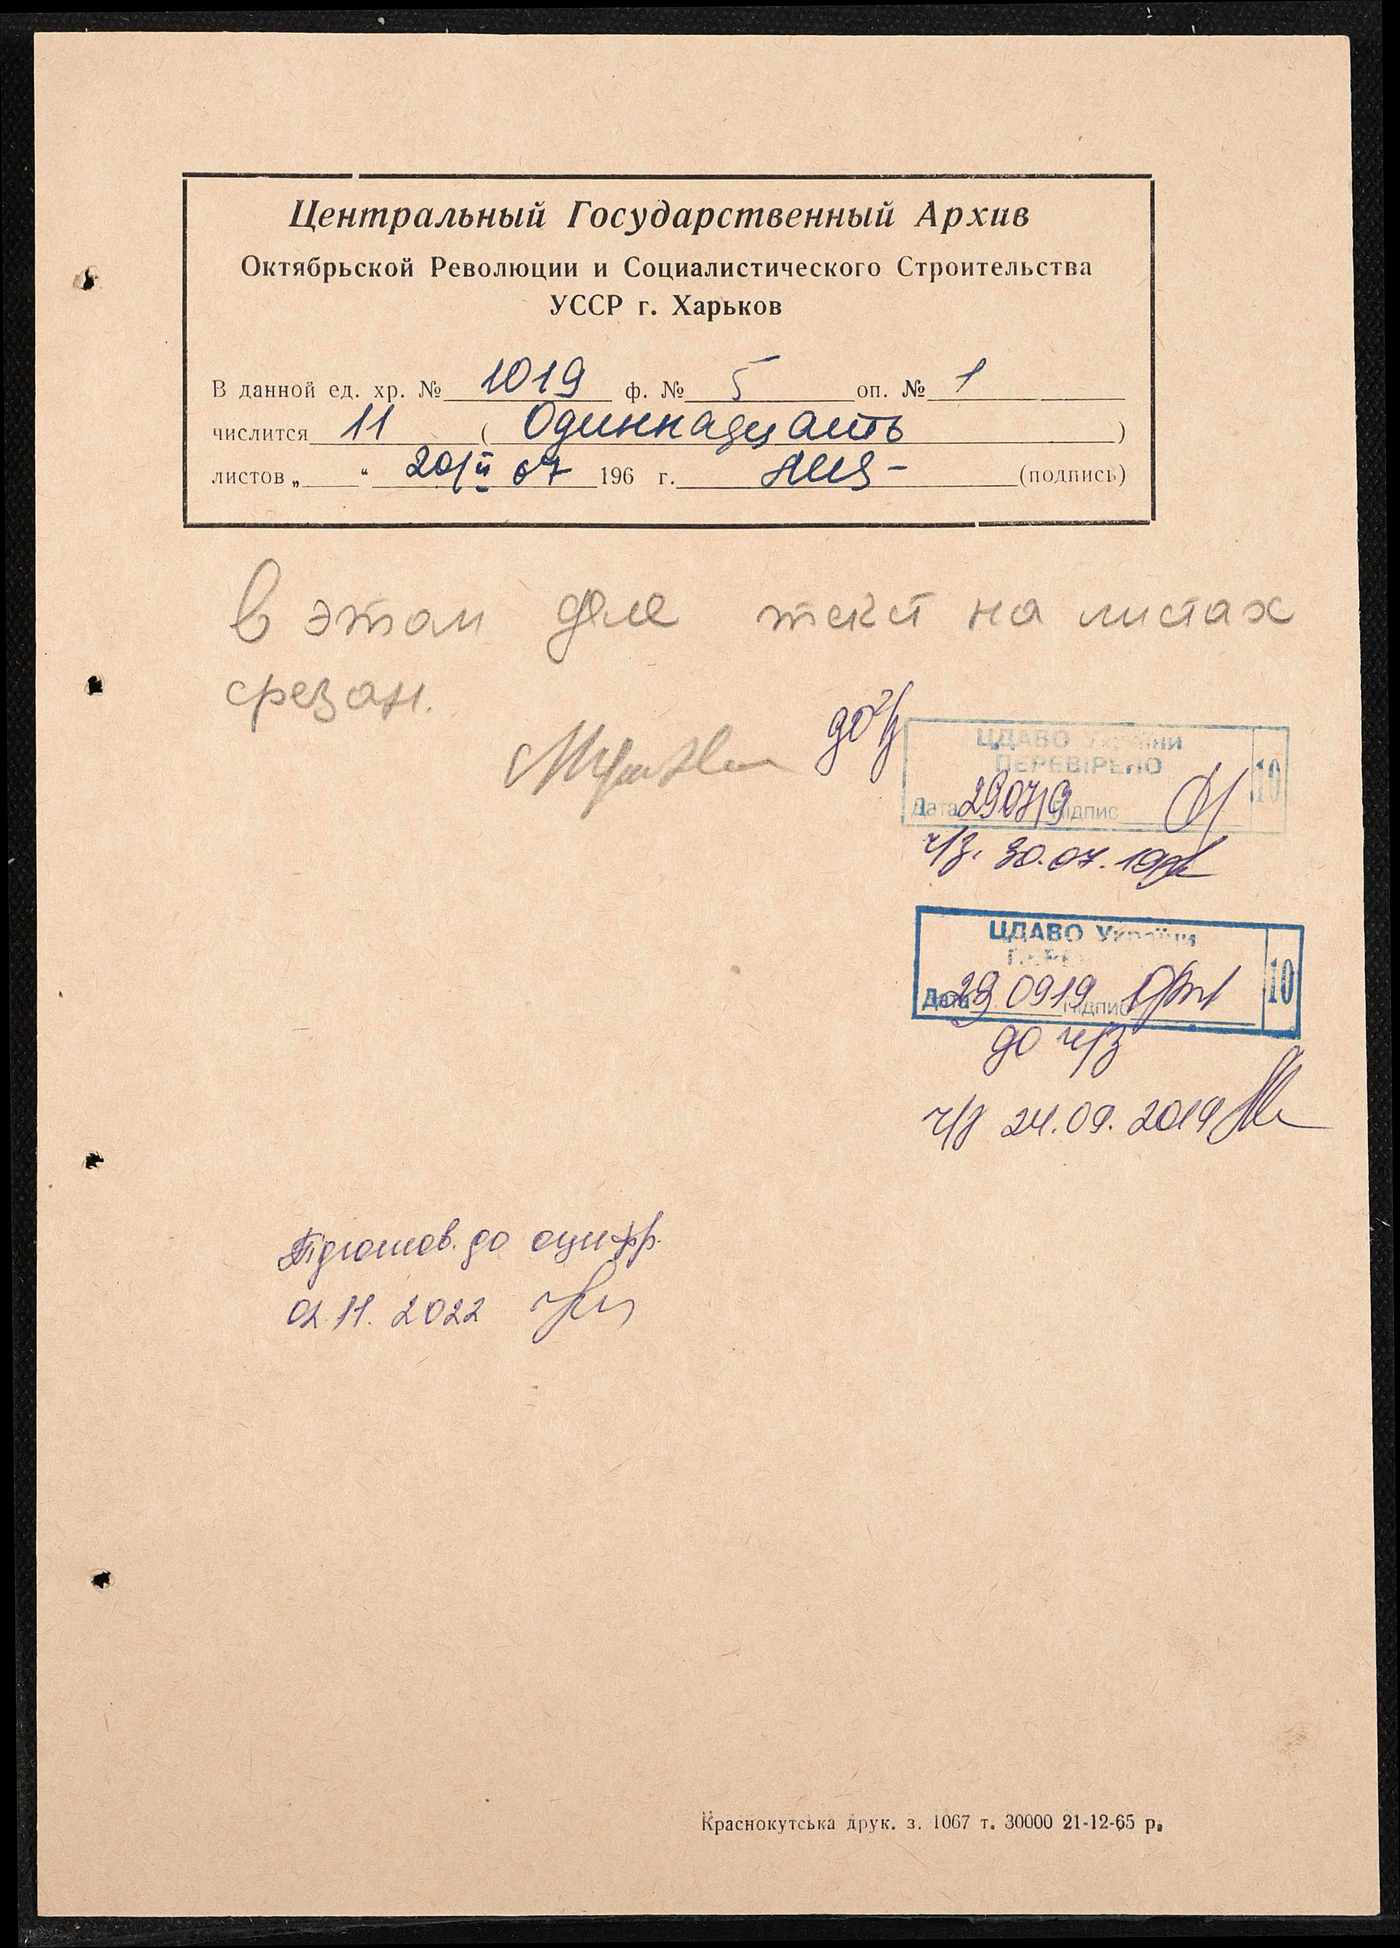 Центральный Государственный Архив
Октябрьской Революции и Социалистического Строительства
УССР г. Харьков
В данной ед. хр. № 1019 ф. № 5 оп. № 1
числится 11 ( Одиннадцать )
листов „ “ 20/II 67 196 г. (подпись)
в этом деле текст на листах
срезан.
ЦДАВО України
ПЕРЕВІРЕНО
Дата 290719 Підпис 10
ч/з. 30.07.19
ЦДАВО України
Дата 29 0919 Підпис 10
до ч/з
ч/з 24.09.2019
Підготов. до оцифр.
02.11.2022
Краснокутська друк. з. 1067 т. 30000 21-12-65 р.